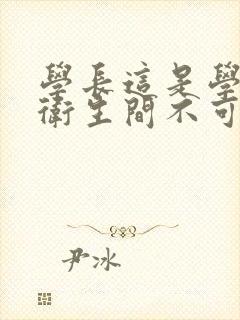 學長這是學
衛生間不可
尹冰